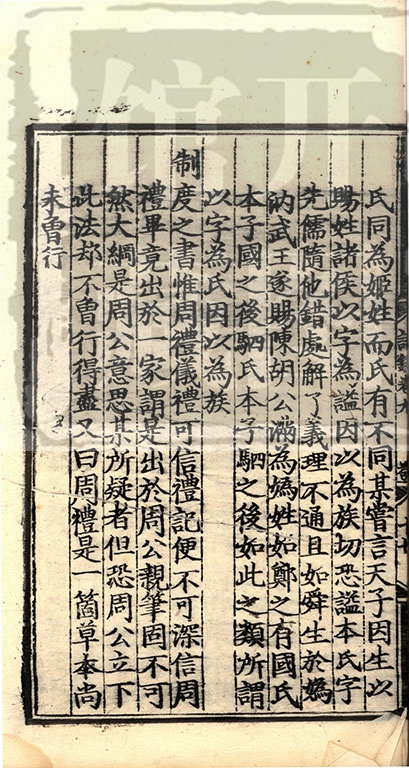 氏同為姬姓而氏有不同某嘗言天子因生以
賜姓諸侯以字為謚因以為族切恐謚本氏字
先儒隨他錯處解了義理不通且如舜生於媯
汭武王遂賜陳胡公滿為媯姓如鄭之有國氏
本子國之後駟氏本子駟之後如此之類所謂
以字為氏因以為族
制度之書惟周禮儀禮可信禮記便不可深信周
禮畢竟出於一家謂是出於周公親筆固不可
然大綱是周公意思某所疑者但恐周公立下
此法却不曾行得盡又曰周禮是一箇草本尚
未曾行